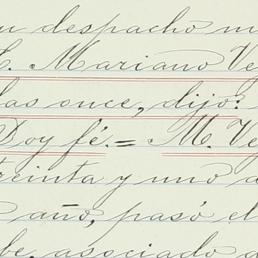 su despacho m
L. Mariano Ve
las once, dijo:
Doy fé.= M. Ve
treinta y uno d
año, pasó el
be, asociado d